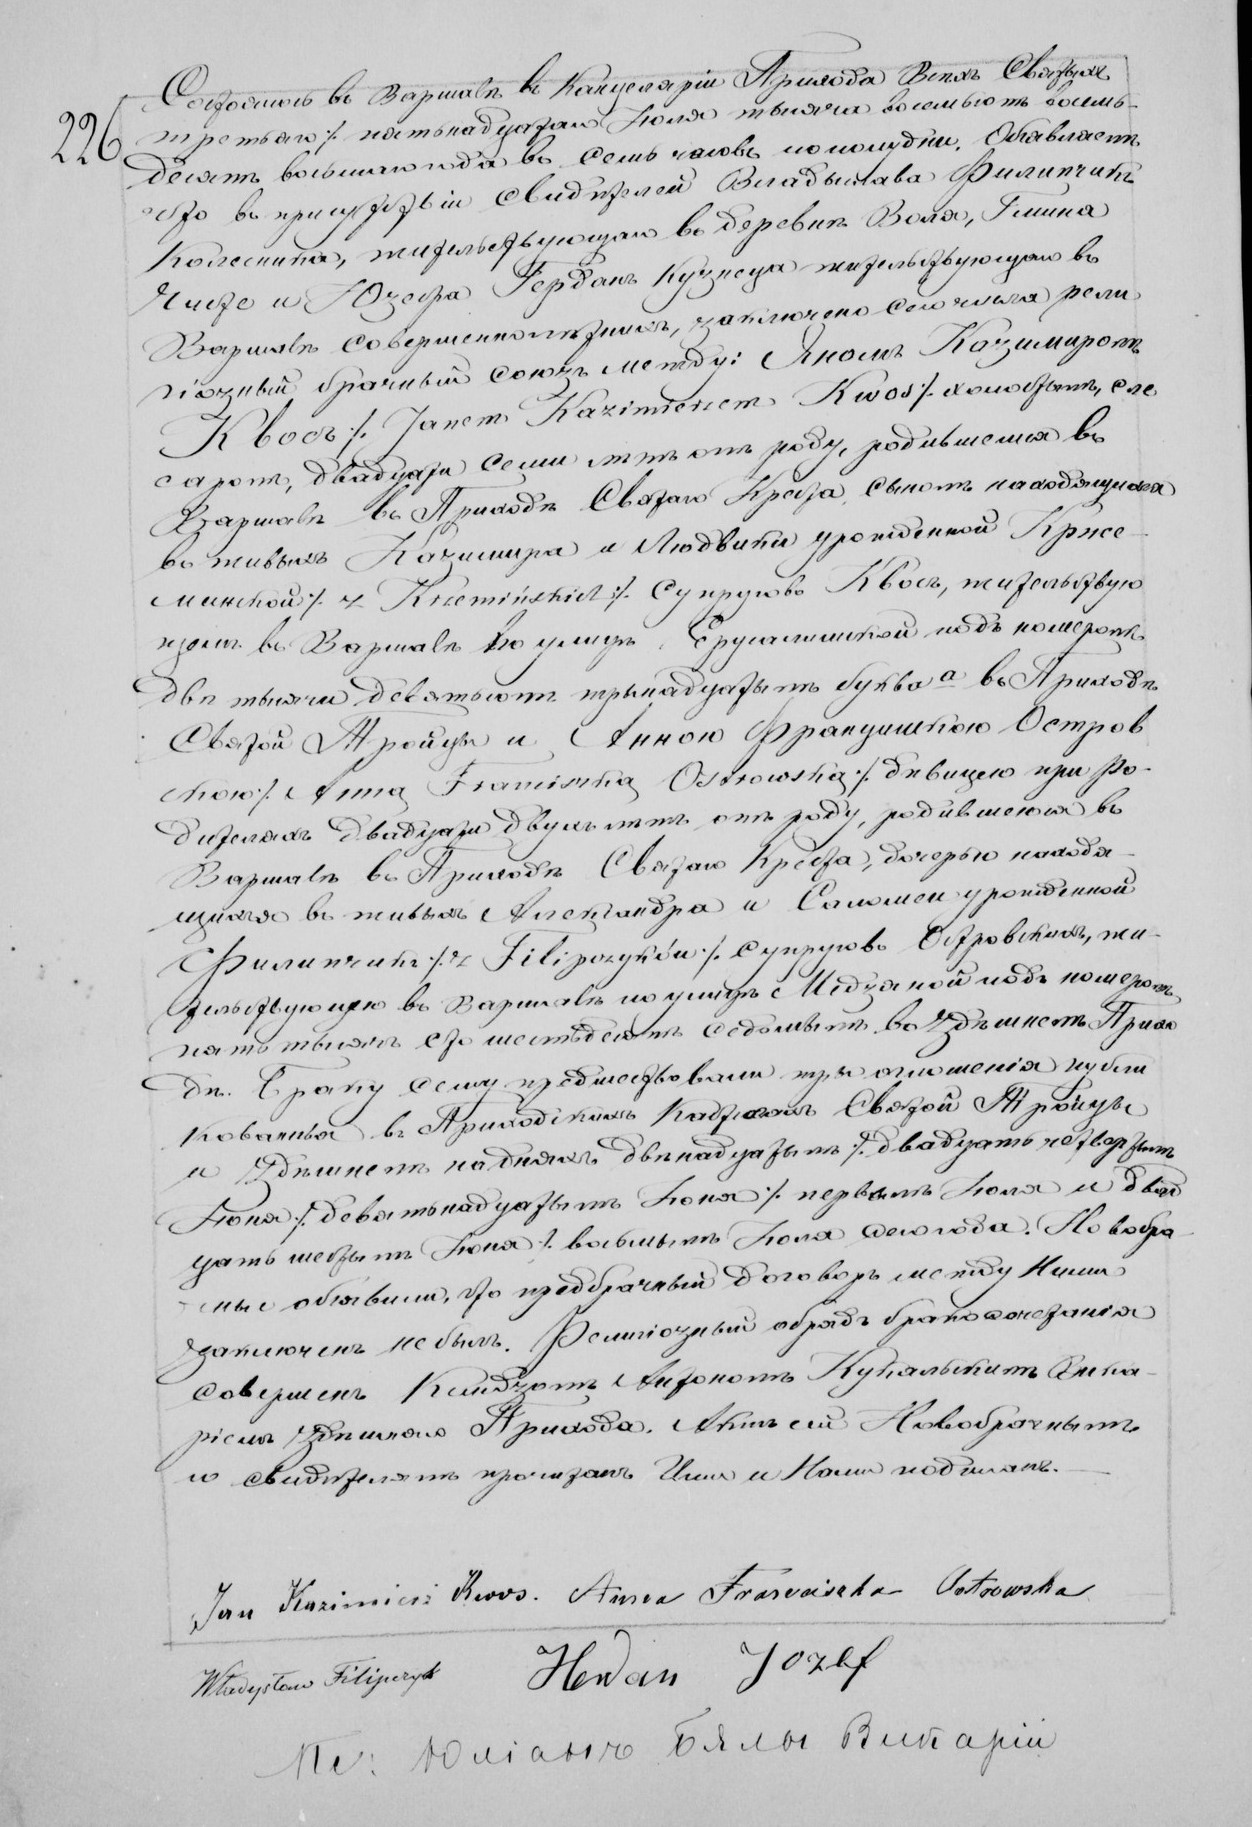 226
Состоялось въ Варшавѣ въ Канцеляріи Прихода Всѣхъ Святыхъ
третьяго /: пятьнадцатаго Іюля тысяча восемьсотъ восемь-
десятъ восьмаго года въ семь часовъ пополудни. Объявляемъ
что въ присутствіи свидѣтелей Владыслава Филипчикъ
Колесника, жительствующаго въ деревнѣ Воля, Гмина
Чисте и Юзефа Герданъ Кузнеца жительствующаго въ
Варшавѣ совершеннолѣтнихъ, заключено сего числа рели
гіозный брачный союзъ между: Яномъ Казимиромъ
Квосъ /: Janem Kazimierzem Kwos /: холостымъ, сле
саромъ, двадцати семи лѣтъ отъ роду, родившемся въ
Варшавѣ въ Приходѣ Святаго Креста, сыномъ находящихся
въ живыхъ Казимира и Людвики урожденной Крысе-
минской /: z Krzemińskich /: супруговъ Квосъ, жительствую
щемъ въ Варшавѣ по улицѣ Ерусалимской подъ номеромъ
двѣ тысячи девятьсотъ тринадцатымъ буква а въ Приходѣ
Святой Тройцы и Анною Францишкою Остров
скою /: Anną Franciszką Ostrowską /: дѣвицею при ро-
дителяхъ двадцати двухъ лѣтъ отъ роду, родившеюся въ
Варшавѣ въ Приходѣ Святаго Креста, дочерью находя-
щихся въ живыхъ Александра и Саломеи урожденной
Филипчикъ /: z Filipczyków /: супруговъ Островскихъ, жи-
тельствующею въ Варшавѣ по улицѣ Медзяной подъ номеромъ
пять тысячъ сто шестьдесятъ седьмымъ въ здѣшнемъ Прихо
дѣ. Браку сему предшествовали три оглашенія публи
кованныя въ Приходскихъ Костелахъ Святой Тройцы
и здѣшнемъ на дняхъ двѣнадцатымъ /: двадцать четвертымъ
Іюня /: девятьнадцатымъ Іюня /: первымъ Іюля и двад
цать шестымъ Іюня /: восьмымъ Іюля сего года. Новобра-
чные объявили, что предбрачный договоръ между ними
заключенъ не былъ. Религіозный обрядъ бракосочетанія
совершенъ Ксендзомъ Антономъ Кукальскимъ Вика-
ріемъ здѣшняго Прихода. Актъ сей Новобрачнымъ
и свидѣтелямъ прочитанъ Ими и Нами подписанъ.
Jan Kazimierz Kwos. Anna Franciszka Ostrowska
Władysław Filipczyk Herdan Jozef
Кс: Юліанъ Бялы Викарій